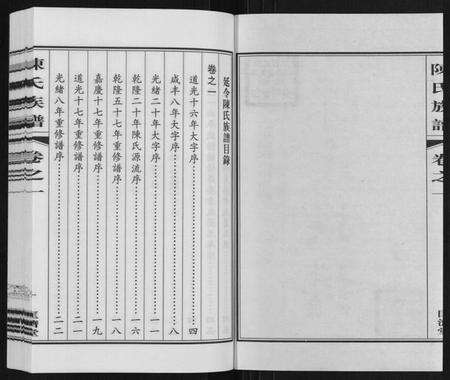 陳氏族譜
卷之一
延令陳氏族譜目錄
卷之一
道光十六年大字序……四
咸丰八年大字序……八
光緒二十年大字序……一一
乾隆二十年陳氏源流序……一六
乾隆五十七年重修譜序……一八
嘉慶十七年重修譜序……一九
道光十七年重修譜序……二一
光緒八年重修譜序……二二
陳氏族譜
卷之一